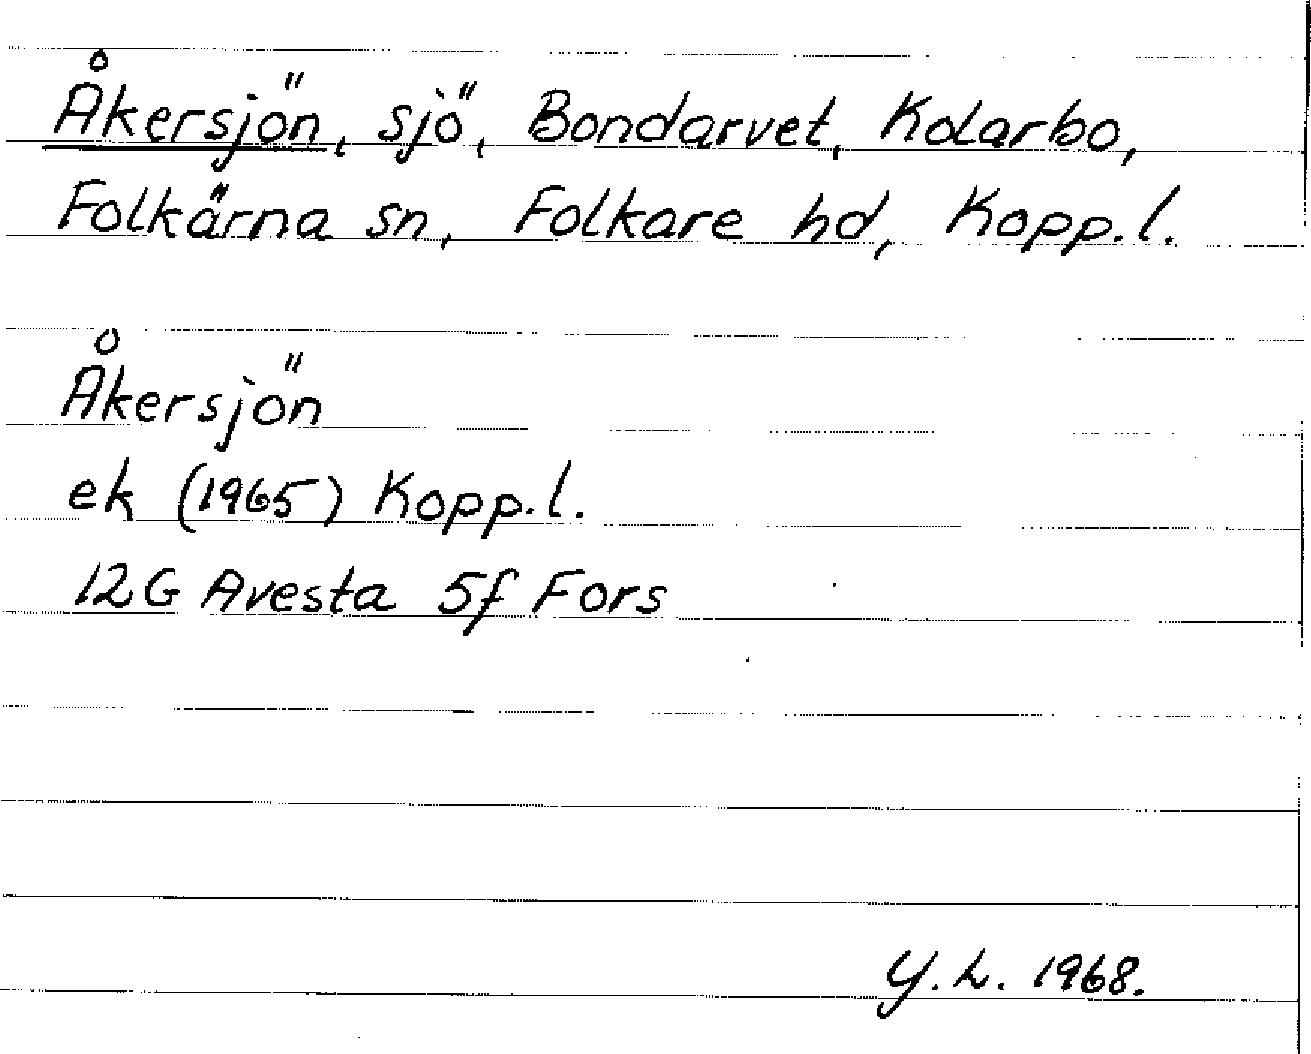 Åkersjön, sjö, Bondarvet, Kolarbo,
Folkärna sn, Folkare hd, Kopp. l.
Åkersjön
ek (1965) Kopp. l.
12G Avesta 5f Fors
Y. L. 1968.